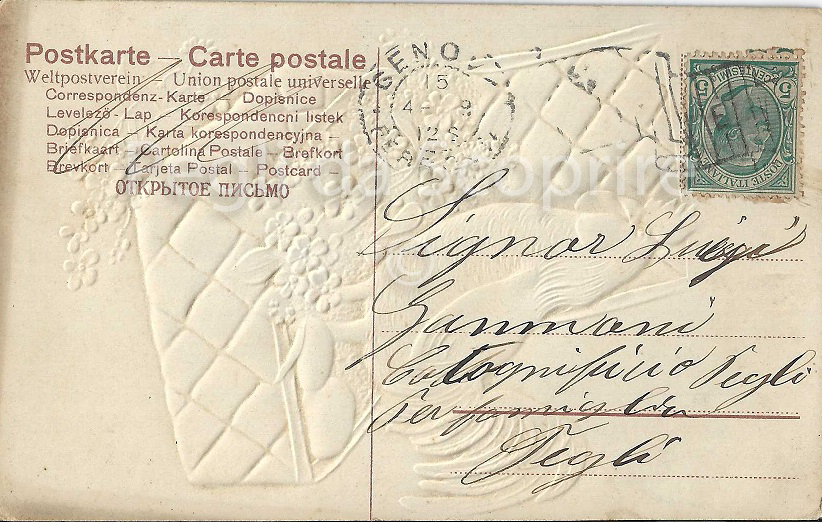 Postkarte — Carte postale
Weltpostverein — Union postale universelle
Correspondenz-Karte — Dopisnice
Levelező-Lap — Korespondencni listek
Dopisnica — Karta korespondencyjna —
Briefkaart — Cartolina Postale — Brefkort
Brevkort — Tarjeta Postal — Postcard —
ОТКРЫТОЕ ПИСЬМО
GENOVA
15
POSTE ITALIANE
CENTESIMI
5 5
da scoprire
©
Signor Luigi
Cotognificio Pegli
Per famiglia
Pegli